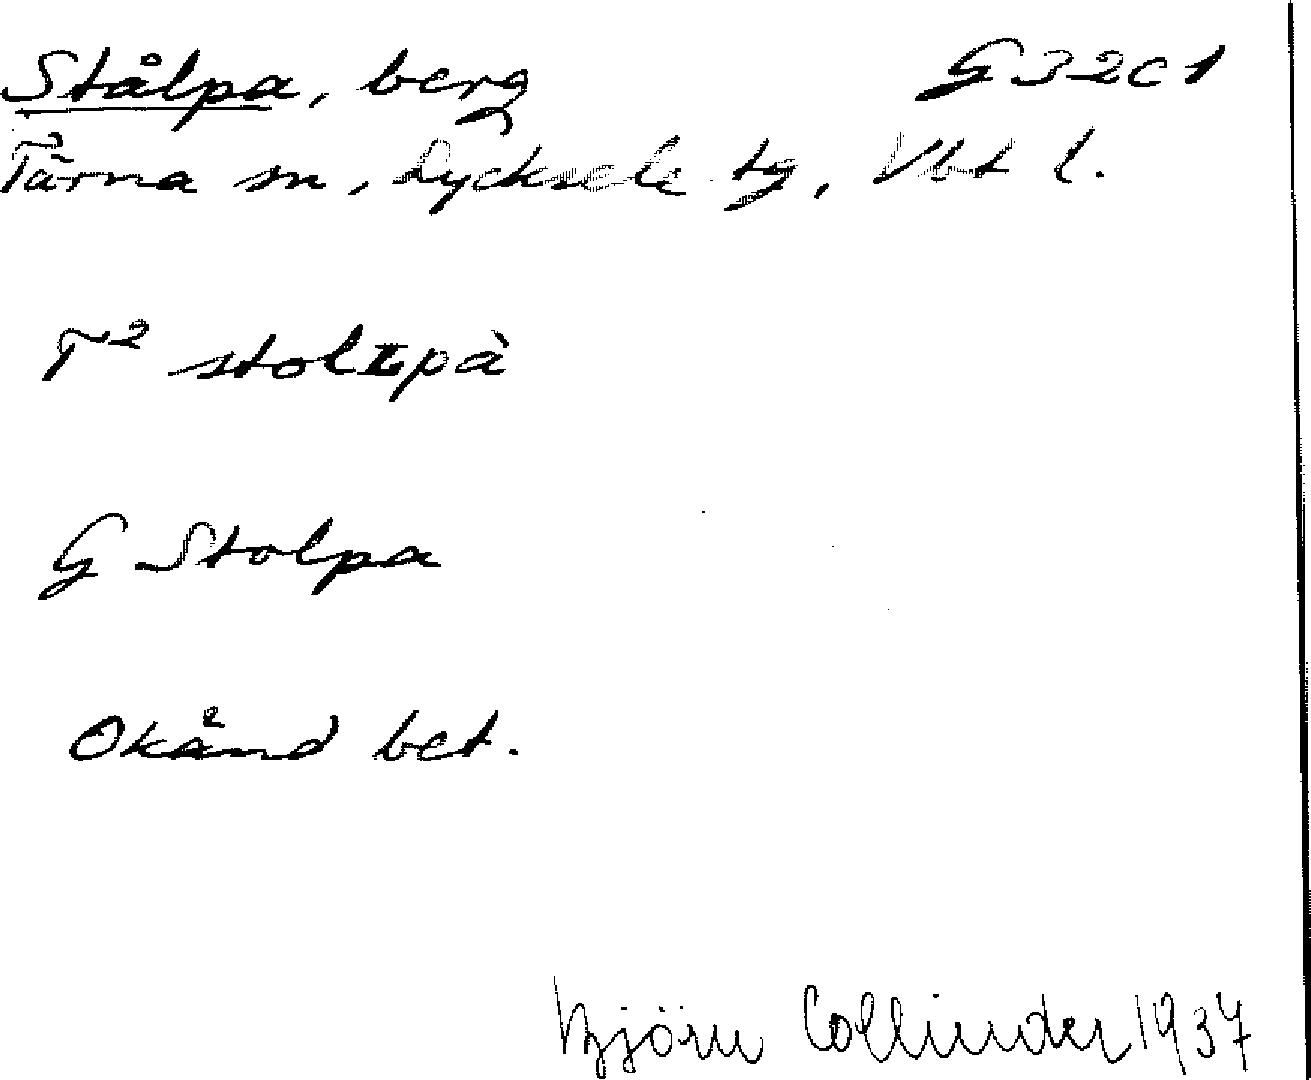 Stålpa, berg G 32c1
Tärna sn, Lycksele tg, Vbt l.
T² stolʟpà
G Stolpa
Okänd bet.
Björn Collinder 1937